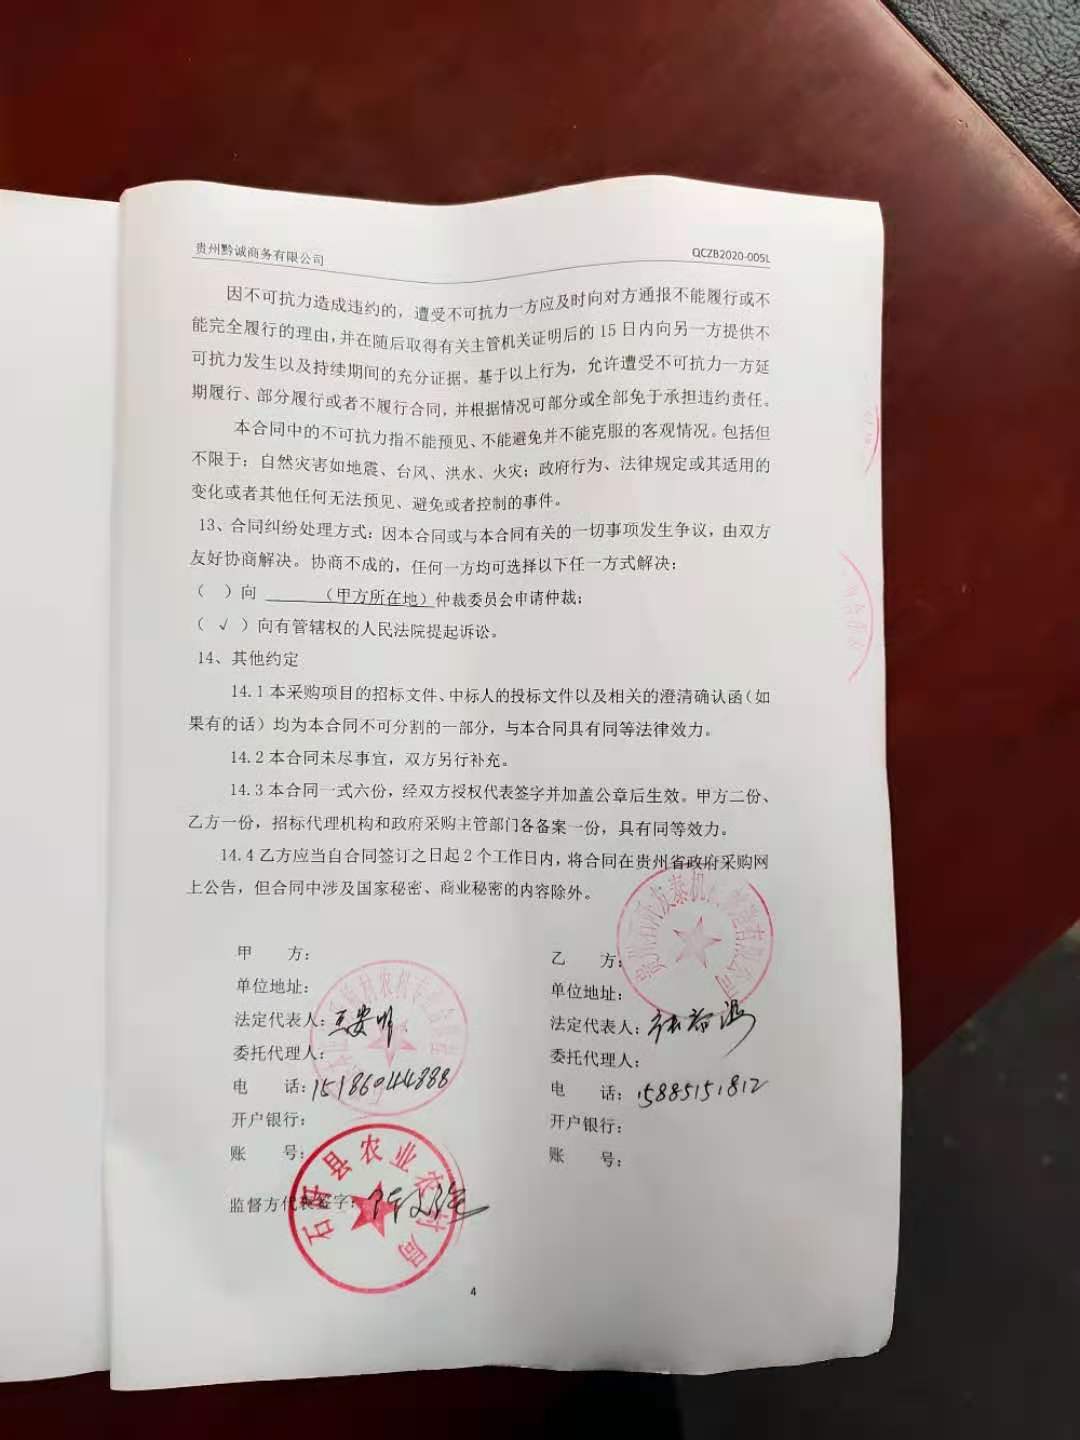 贵州黔诚商务有限公司
QCZB2020-005L
因不可抗力造成违约的，遭受不可抗力一方应及时向对方通报不能履行或不
能完全履行的理由，并在随后取得有关主管机关证明后的 15 日内向另一方提供不
可抗力发生以及持续期间的充分证据。基于以上行为，允许遭受不可抗力一方延
期履行、部分履行或者不履行合同，并根据情况可部分或全部免于承担违约责任。
本合同中的不可抗力指不能预见、不能避免并不能克服的客观情况。包括但
不限于：自然灾害如地震、台风、洪水、火灾；政府行为、法律规定或其适用的
变化或者其他任何无法预见、避免或者控制的事件。
13、合同纠纷处理方式：因本合同或与本合同有关的一切事项发生争议，由双方
友好协商解决。协商不成的，任何一方均可选择以下任一方式解决：
（ ）向 ______（甲方所在地）仲裁委员会申请仲裁；
（ √ ）向有管辖权的人民法院提起诉讼。
14、其他约定
14.1 本采购项目的招标文件、中标人的投标文件以及相关的澄清确认函（如
果有的话）均为本合同不可分割的一部分，与本合同具有同等法律效力。
14.2 本合同未尽事宜，双方另行补充。
14.3 本合同一式六份，经双方授权代表签字并加盖公章后生效。甲方二份、
乙方一份，招标代理机构和政府采购主管部门各备案一份，具有同等效力。
14.4 乙方应当自合同签订之日起 2 个工作日内，将合同在贵州省政府采购网
上公告，但合同中涉及国家秘密、商业秘密的内容除外。
甲 方：
单位地址：
法定代表人：
委托代理人：
电 话：15186044888
开户银行：
账 号：
监督方代表签字：
石阡县农业农村局
乙 方：
单位地址：
法定代表人：
委托代理人：
电 话：15885151812
开户银行：
账 号：
4